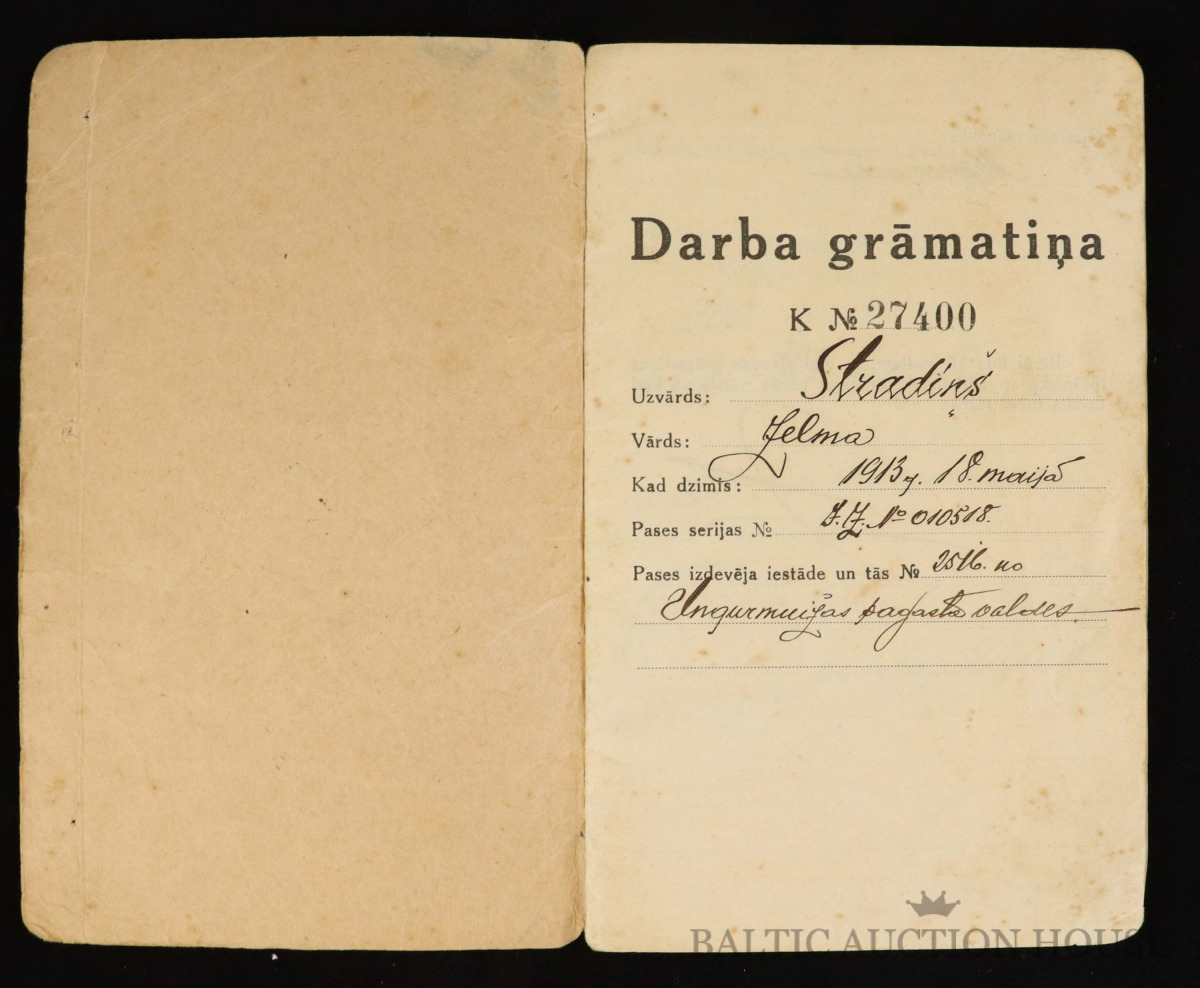 Darba grāmatiņa
K № 27400
Uzvārds: Stradiņš
Vārds: Zelma
Kad dzimis: 1913 g. 18. maijā
Pases serijas № Z.Z. № 010518.
Pases izdevēja iestāde un tās № 2516. no
Ungurmuižas pagasta valdes.
BALTIC AUCTION HOUSE